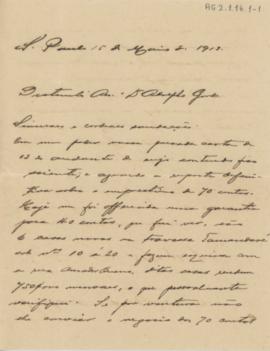 AG 2.1.16 1-1
S. Paulo 15 de Maio de 1912.
Am.º Dr Adolpho Gordo
Sinceras e cordeaes saudações
Em meu poder vossa presada carta de
13 do andante de cujo contendo fico
sciente, e aguardo a resposta defini-
tiva sobre o emprestimo de 70 contos.
Hoje me foi offerecida uma garantia
para 40 contos, que fui ver, são
6 casas novas na travessa
sob nºs 10 á 20 e fazem esquina com
a rua ditas casas rendem
750$000 mensaes, o que pessoalmente
verifiquei. Se por ventura não
lhe convier o negocio dos 70 contos